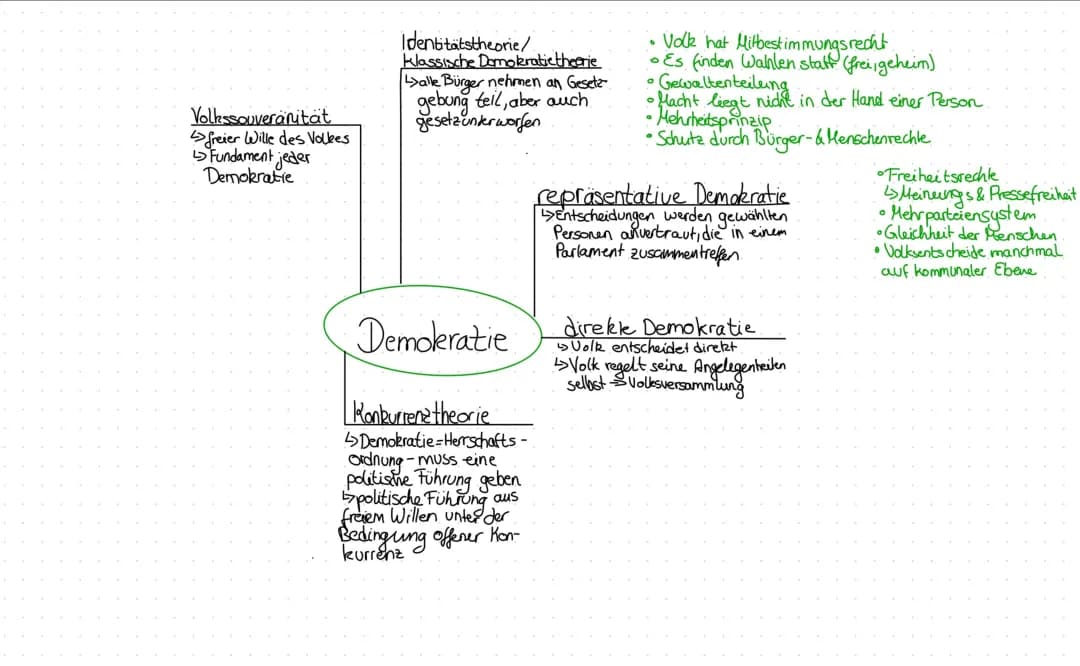 Identitätstheorie/
klassische Demokratietheorie
↳ alle Bürger nehmen an Gesetz-
gebung teil, aber auch
gesetzunterworfen
• Volk hat Mitbestimmungsrecht
• Es finden Wahlen statt (frei, geheim)
• Gewaltenteilung
• Macht liegt nicht in der Hand einer Person
• Mehrheitsprinzip
• Schutz durch Bürger- & Menschenrechte
Volkssouveränität
↳ freier Wille des Volkes
↳ Fundament jeder
Demokratie
• Freiheitsrechte
↳ Meinungs & Pressefreiheit
• Mehrparteiensystem
• Gleichheit der Menschen
• Volksentscheide manchmal
auf kommunaler Ebene
repräsentative Demokratie
↳ Entscheidungen werden gewählten
Personen anvertraut, die in einem
Parlament zusammentreffen
Demokratie
direkte Demokratie
↳ Volk entscheidet direkt
↳ Volk regelt seine Angelegenheiten
selbst → Volksversammlung
Konkurrenztheorie
↳ Demokratie = Herrschafts-
ordnung - muss eine
politische Führung geben
↳ politische Führung aus
freiem Willen unter der
Bedingung offener Kon-
kurrenz